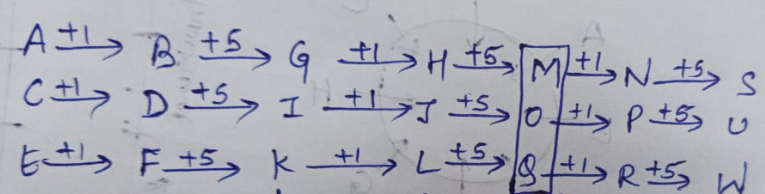 A +1→ B +5→ G +1→ H +5→ M +1→ N +5→ S
C +1→ D +5→ I +1→ J +5→ O +1→ P +5→ U
E +1→ F +5→ K +1→ L +5→ Q +1→ R +5→ W